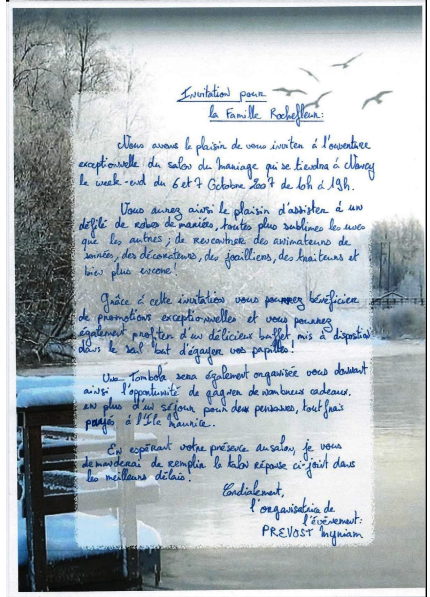 Invitation pour
la Famille Rochefleur:
Nous avons le plaisir de vous inviter à l'ouverture
exceptionnelle du salon du Mariage qui se tiendra à Nancy
le week-end du 6 et 7 Octobre 2007 de 10h à 19h.
Vous aurez ainsi le plaisir d'assister à un
défilé de robes de mariées, toutes plus sublimes les unes
que les autres; de rencontrer des animateurs de
soirées, des décorateurs, des joailliers, des traiteurs et
bien plus encore!
Grâce à cette invitation vous pourrez bénéficier
de promotions exceptionnelles et vous pourrez
également profiter d'un délicieux buffet mis à disposition
dans le seul but d'égayer vos papilles!
Une Tombola sera également organisée vous donnant
ainsi l'opportunité de gagner de nombreux cadeaux.
en plus d'un séjour pour deux personnes, tout frais
payés à l'Ile Maurice.
En espérant votre présence au salon, je vous
demanderai de remplir le talon réponse ci-joint dans
les meilleurs délais.
Cordialement,
l'organisatrice de
l'événement:
PREVOST Myriam